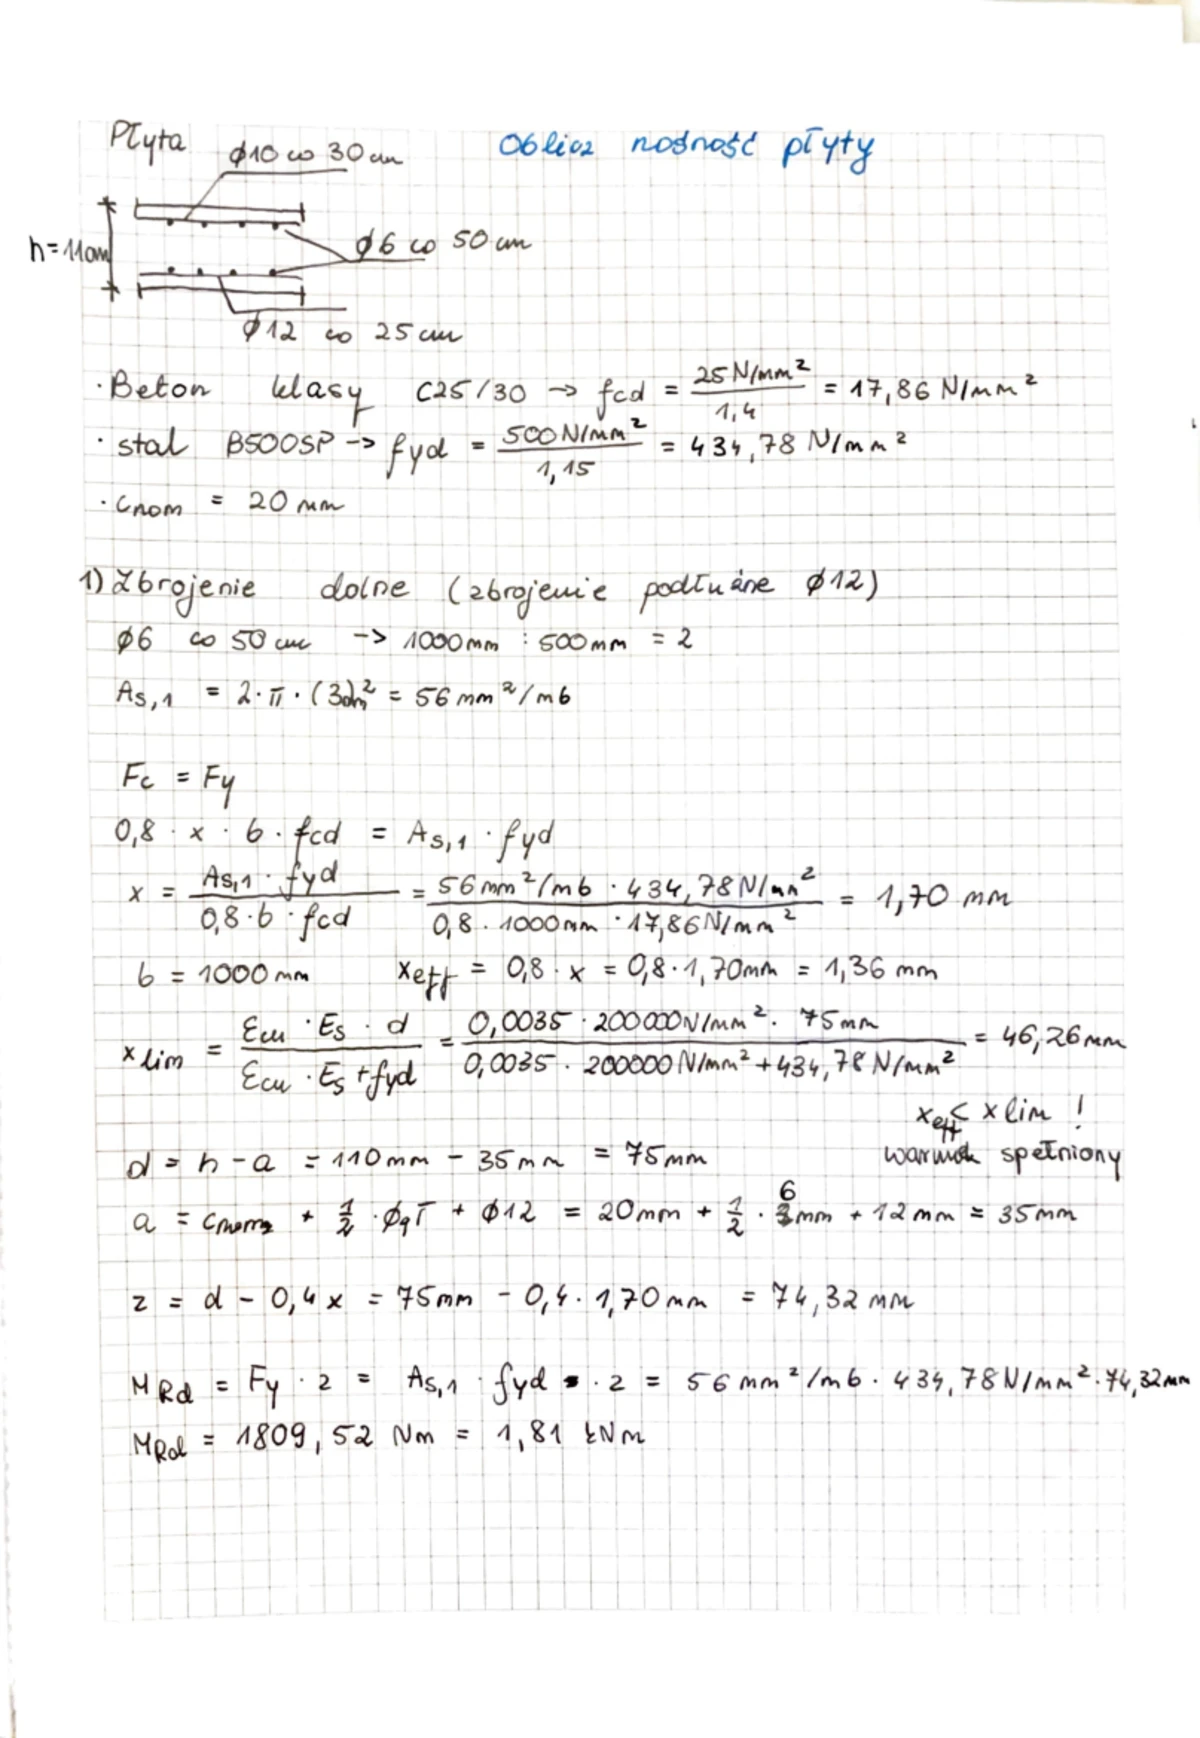 Płyta
Oblicz nośność płyty
ϕ10 co 30 cm
h=11cm
ϕ6 co 50 cm
ϕ12 co 25 cm
· Beton klasy C25/30 → fcd = 25 N/mm² / 1,4 = 17,86 N/mm²
· stal B500SP → fyd = 500 N/mm² / 1,15 = 434,78 N/mm²
· Cnom = 20 mm
1) Zbrojenie dolne (zbrojenie podłużne ϕ12)
ϕ6 co 50 cm -> 1000mm : 500mm = 2
As,1 = 2·π·(3)² = 56 mm²/mb
Fc = Fy
0,8 · x · b · fcd = As,1 · fyd
x = As,1 · fyd / 0,8·b·fcd = 56mm²/mb · 434,78N/mm² / 0,8 · 1000mm · 17,86N/mm² = 1,70 mm
b = 1000mm xeff = 0,8 · x = 0,8·1,70mm = 1,36 mm
x lim = Ɛcu · Es · d / Ɛcu · Es + fyd = 0,0035 · 200000N/mm² · 75mm / 0,0035 · 200000 N/mm² + 434,78 N/mm² = 46,26mm
xeff < x lim !
warunek spełniony
d = h - a = 110mm - 35mm = 75mm
a = cnom + 1/2 · ϕgł + ϕ12 = 20mm + 1/2 · 6mm + 12mm = 35mm
z = d - 0,4x = 75mm - 0,4 · 1,70mm = 74,32 mm
MRd = Fy · z = As,1 · fyd · z = 56 mm²/mb · 434,78N/mm² · 74,32mm
MRd = 1809,52 Nm = 1,81 kNm